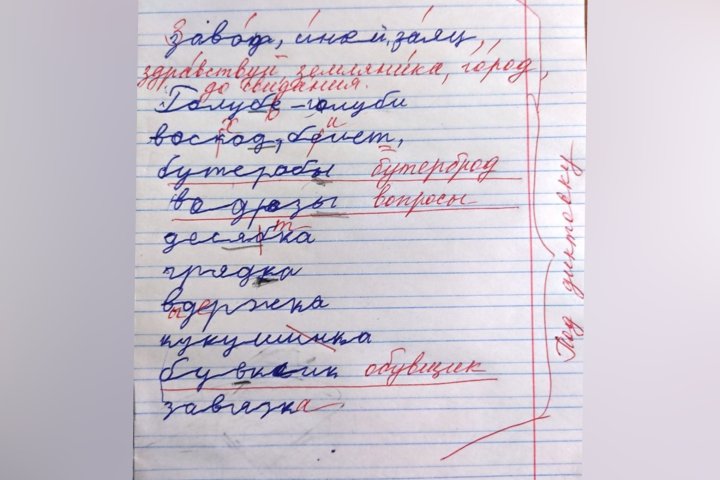 завод, иней, заяц,
здравствуй земляника, город,
до свидания.
Голубь – голуби
восход,
бутерабы бутерброд
водрозы вопросы
десятка
грядка
вдержка
кукушинка
бувксик обувщик
завязка
Под диктовку